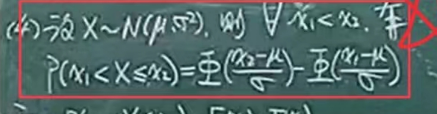 (4) 设 X~N(μ,σ²), 则 ∀ x₁<x₂, 有
P(x₁<X≤x₂)=Φ((x₂-μ)/σ)-Φ((x₁-μ)/σ)